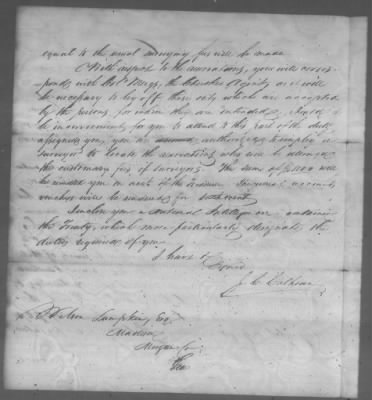 equal to the usual surveying fees will be made
With respect to the reservations, you will corres-
pond with Col. Meigs, the Cherokee Agent, as it will
be necessary to lay off those only which are accepted
by the persons for whom they are intended. Should
it be inconvenient for you to attend to this part of the duty
assigned you, you are authorized to employ a
surveyor to locate the reservations who will be allowed
the customary fees of surveyors. The sum of
be remitted you on acct. of the
vouchers will be rendered for settlement
Inclosed you
the Treaty, which more particularly designates the
duties required of you
I have &
J. C. Calhoun
Wilson Lumpkin, Esq.
Madison
Morgan Co.
Geo